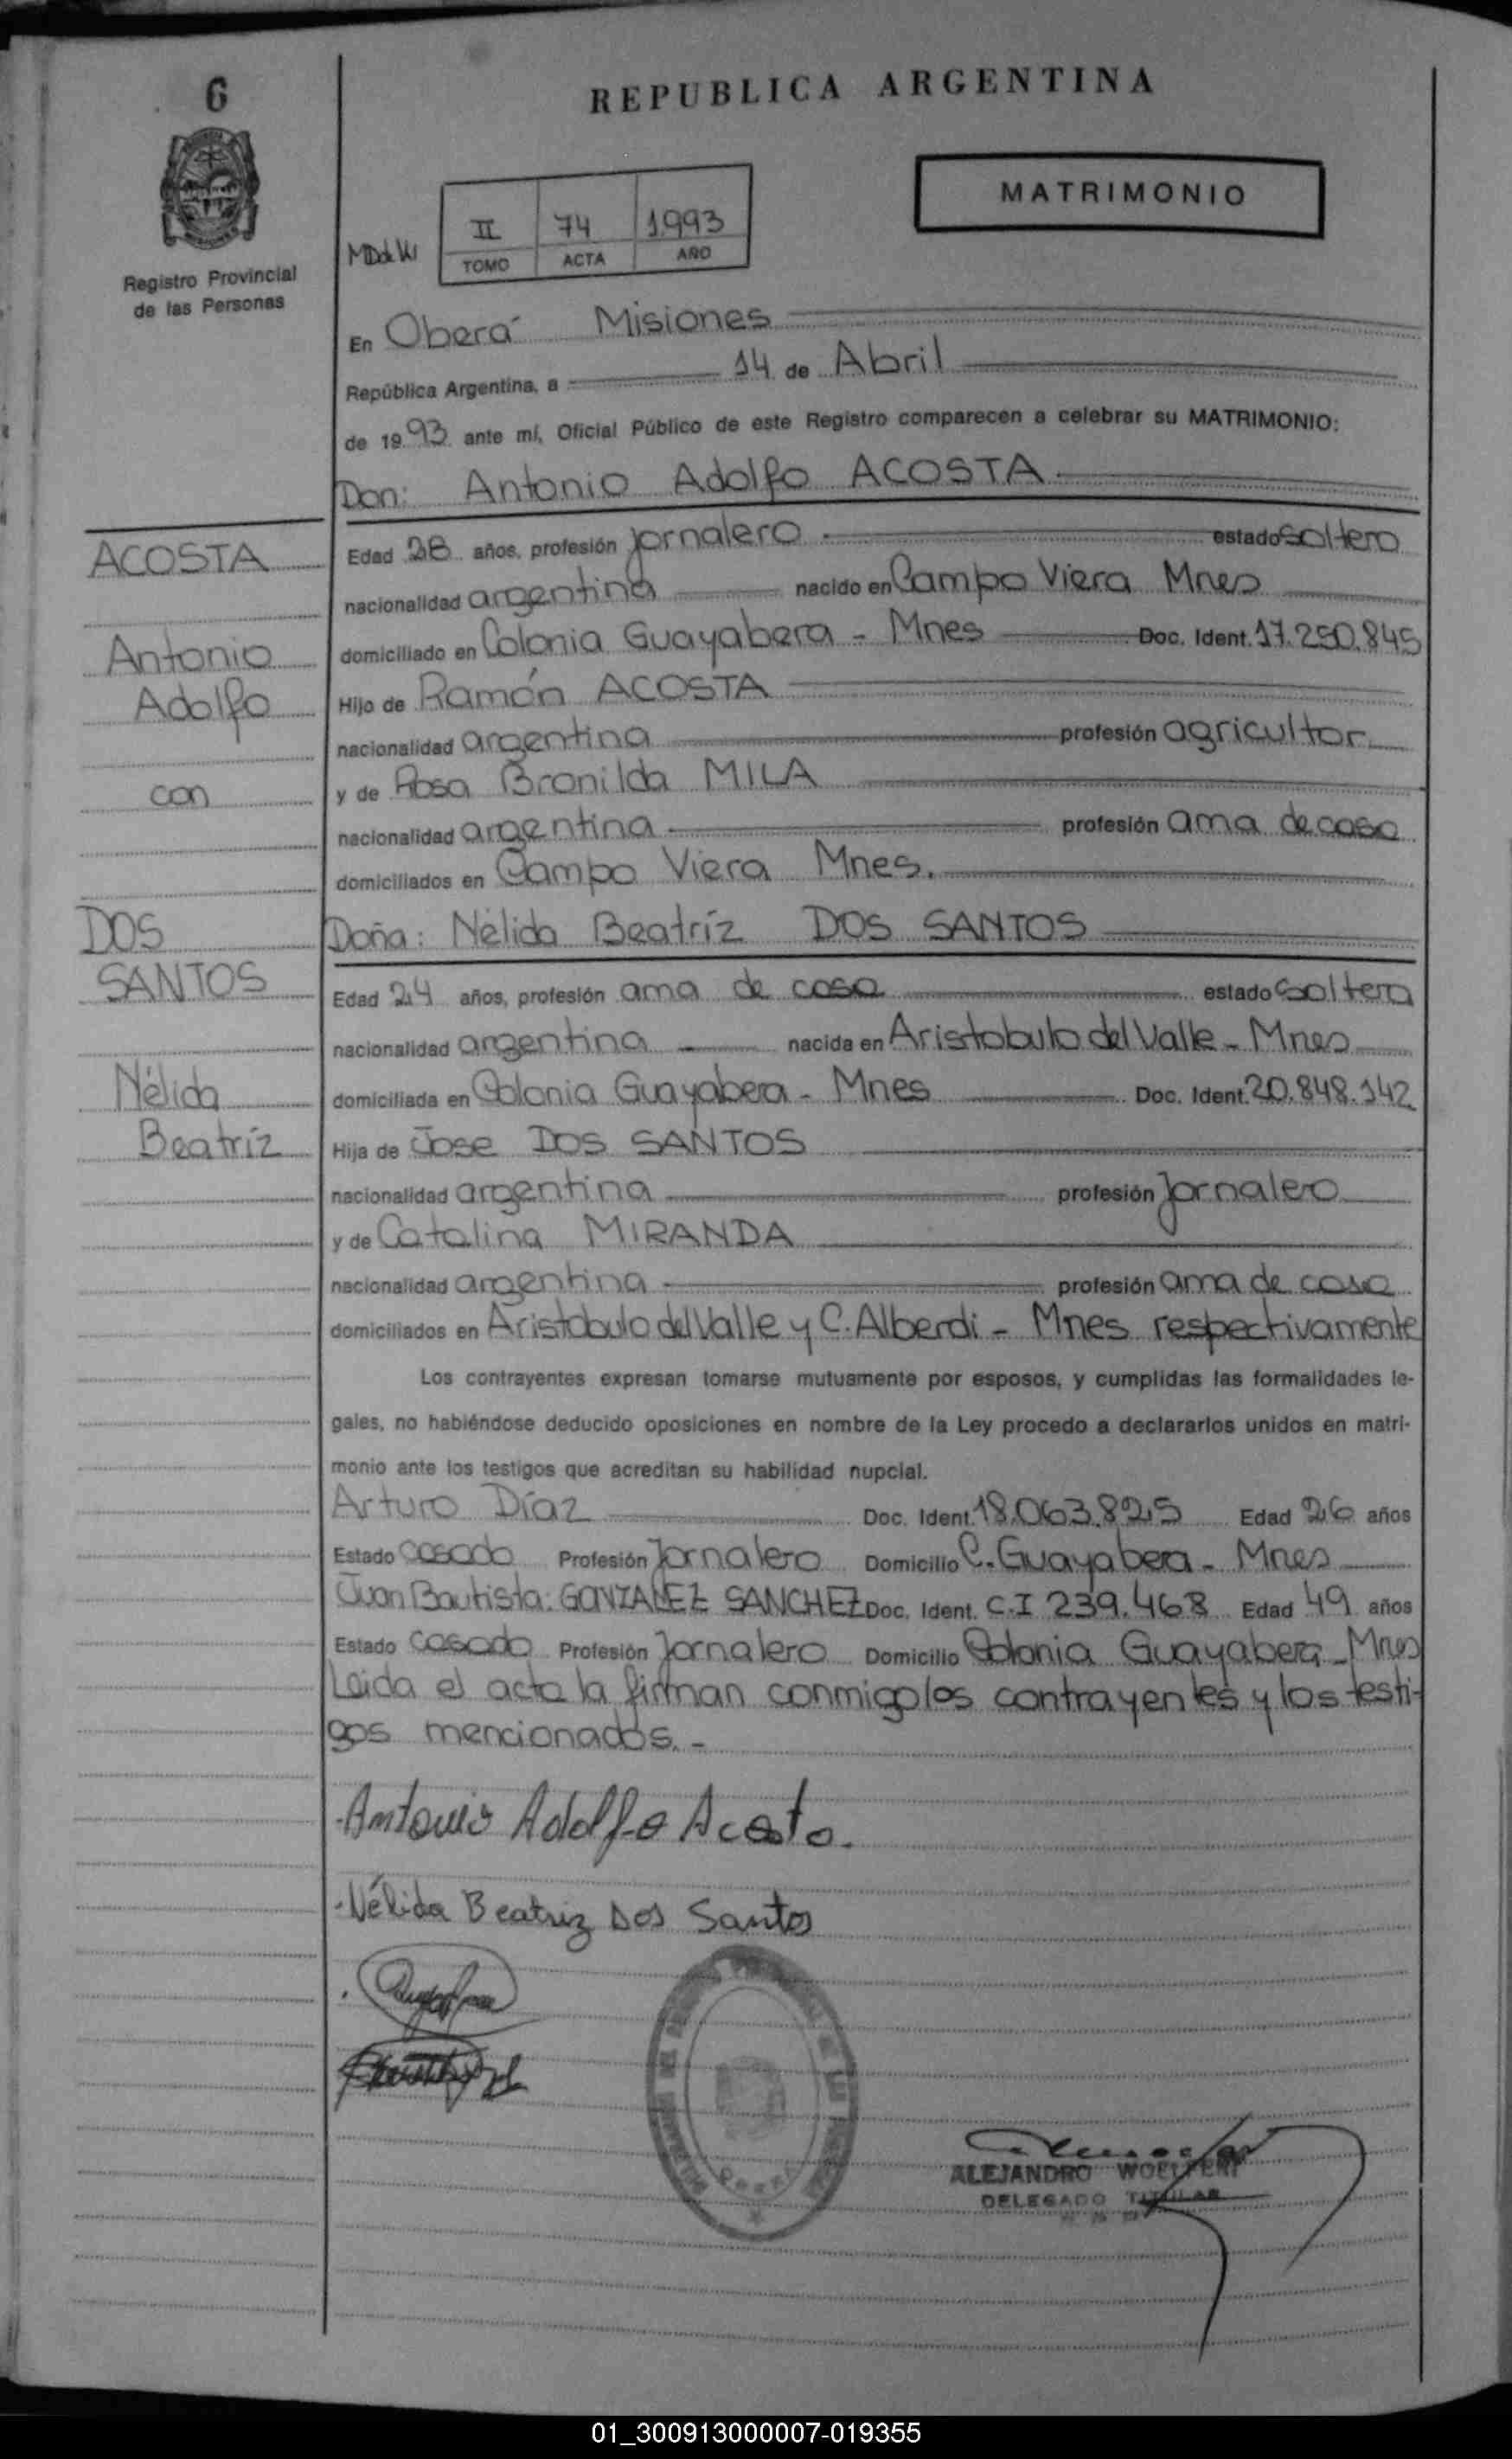 6
REPUBLICA ARGENTINA
Registro Provincial
de las Personas
II 74 1993
TOMO ACTA AÑO
MATRIMONIO
En Oberá Misiones
República Argentina, a 14 de Abril
de 1993 ante mí, Oficial Público de este Registro comparecen a celebrar su MATRIMONIO:
Don: Antonio Adolfo ACOSTA
ACOSTA
Antonio
Adolfo
con
DOS
SANTOS
Nélida
Beatríz
Edad 28 años, profesión jornalero estado soltero
nacionalidad argentina nacido en Campo Viera Mnes
domiciliado en Colonia Guayabera - Mnes Doc. Ident. 17.250.845
Hijo de Ramón ACOSTA
nacionalidad argentina profesión agricultor
y de Rosa Bronilda MILA
nacionalidad argentina profesión ama de casa
domiciliados en Campo Viera Mnes.
Doña: Nélida Beatríz DOS SANTOS
Edad 24 años, profesión ama de casa estado soltera
nacionalidad argentina nacida en Aristobulo del Valle - Mnes
domiciliada en Colonia Guayabera - Mnes Doc. Ident. 20.848.142
Hija de Jose DOS SANTOS
nacionalidad argentina profesión Jornalero
y de Catalina MIRANDA
nacionalidad argentina profesión ama de casa
domiciliados en Aristobulo del Valle y C. Alberdi - Mnes respectivamente
Los contrayentes expresan tomarse mutuamente por esposos, y cumplidas las formalidades le-
gales, no habiéndose deducido oposiciones en nombre de la Ley procedo a declararlos unidos en matri-
monio ante los testigos que acreditan su habilidad nupcial.
Arturo Díaz Doc. Ident. 18.063.825 Edad 26 años
Estado casado Profesión Jornalero Domicilio C. Guayabera - Mnes
Juan Bautista: GONZALEZ SANCHEZ Doc. Ident. C.I 239.468 Edad 49 años
Estado casado Profesión Jornalero Domicilio Colonia Guayabera - Mnes
Leida el acta la firman conmigo los contrayentes y los testi-
gos mencionados. -
Antonio Adolfo Acosta.
Nélida Beatriz Dos Santos
ALEJANDRO WOELFERT
DELEGADO TITULAR
01_300913000007-019355